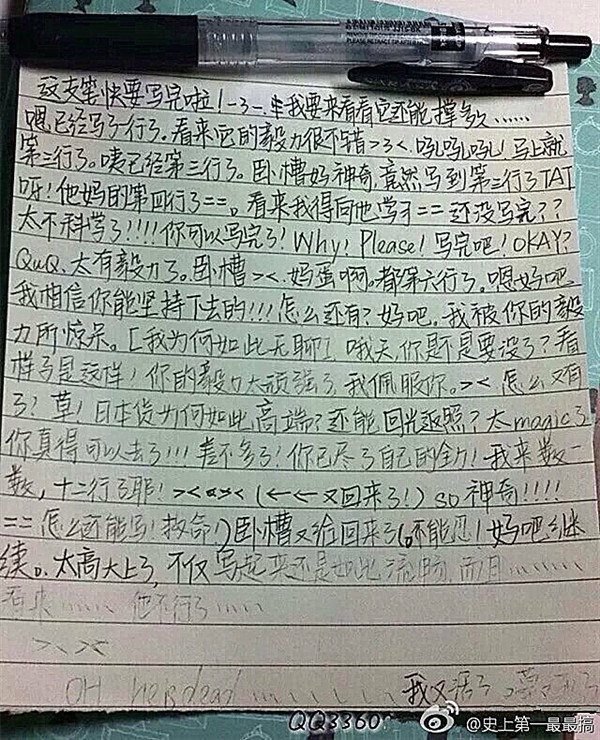 这支笔快要写完啦!-3-.我要来看看它还能撑多久……
嗯已经写了一行了。看来它的毅力很不错>3<.吼吼吼!马上就
第二行了。咦已经第三行了。卧槽好神奇.竟然写到第三行了TAT
呀!他妈的第四行了==。看来我得向他学习==还没写完??
太不科学了!!!!你可以写完了!Why!Please!写完吧!OKAY?
QuQ.太有毅力了。卧槽><.妈蛋啊。都第六行了。嗯好吧
我相信你能坚持下去的!!!怎么还有?好吧。我被你的毅
力所惊呆。[我为何如此无聊]哦天,你是不是要没了?看
样子是这样!你的毅力太顽强了,我佩服你。><怎么又有
了?草!日本货为何如此高端?还能回光返照?太magic了
你真得可以去了!!!差不多了!你已尽了自己的全力!我来数一
数,十二行了耶!><(←←又回来了!)so神奇!!!!
==怎么还能写!救命!)卧槽又给回来了(。不能忍!好吧继
续。太高大上了,不仅写起来还是如此流畅,而且……
看来……他不行了……
>、><
OH he is dead…… 我又活了
QQ3360
@史上第一最最搞